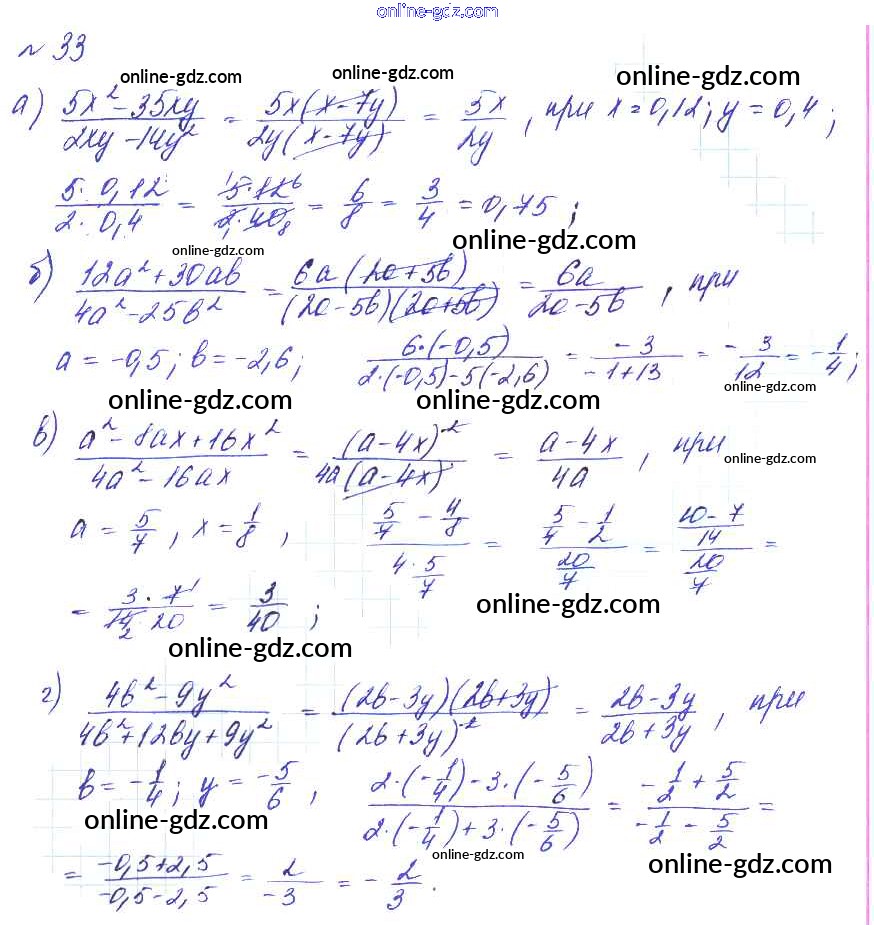 online-gdz.com
№ 33
online-gdz.com online-gdz.com online-gdz.com
а) (5x² - 35xy)/(2xy - 14y²) = (5x(x - 7y))/(2y(x - 7y)) = 5x/2y , при x = 0,12; y = 0,4 ;
(5 · 0,12)/(2 · 0,4) = (5 · 12)/(2 · 40) = 6/8 = 3/4 = 0,75 ;
online-gdz.com online-gdz.com
б) (12a² + 30ab)/(4a² - 25b²) = (6a(2a + 5b))/((2a - 5b)(2a + 5b)) = 6a/(2a - 5b) , при
a = -0,5 ; b = -2,6 ; (6·(-0,5))/(2·(-0,5) - 5(-2,6)) = -3/(-1+13) = -3/12 = -1/4 ;
online-gdz.com online-gdz.com online-gdz.com
в) (a² - 8ax + 16x²)/(4a² - 16ax) = (a - 4x)²/(4a(a - 4x)) = (a - 4x)/4a , при
online-gdz.com
a = 5/7 , x = 1/8 , (5/7 - 4/8)/(4 · 5/7) = (5/7 - 1/2)/(20/7) = ((10 - 7)/14)/(20/7) =
= (3 · 7)/(14 · 20) = 3/40 ;
online-gdz.com online-gdz.com
г) (4b² - 9y²)/(4b² + 12by + 9y²) = ((2b - 3y)(2b + 3y))/(2b + 3y)² = (2b - 3y)/(2b + 3y) , при
b = -1/4 ; y = -5/6 , (2·(-1/4) - 3·(-5/6))/(2·(-1/4) + 3·(-5/6)) = (-1/2 + 5/2)/(-1/2 - 5/2) =
online-gdz.com online-gdz.com online-gdz.com
= (-0,5+2,5)/(-0,5-2,5) = 2/-3 = -2/3 .